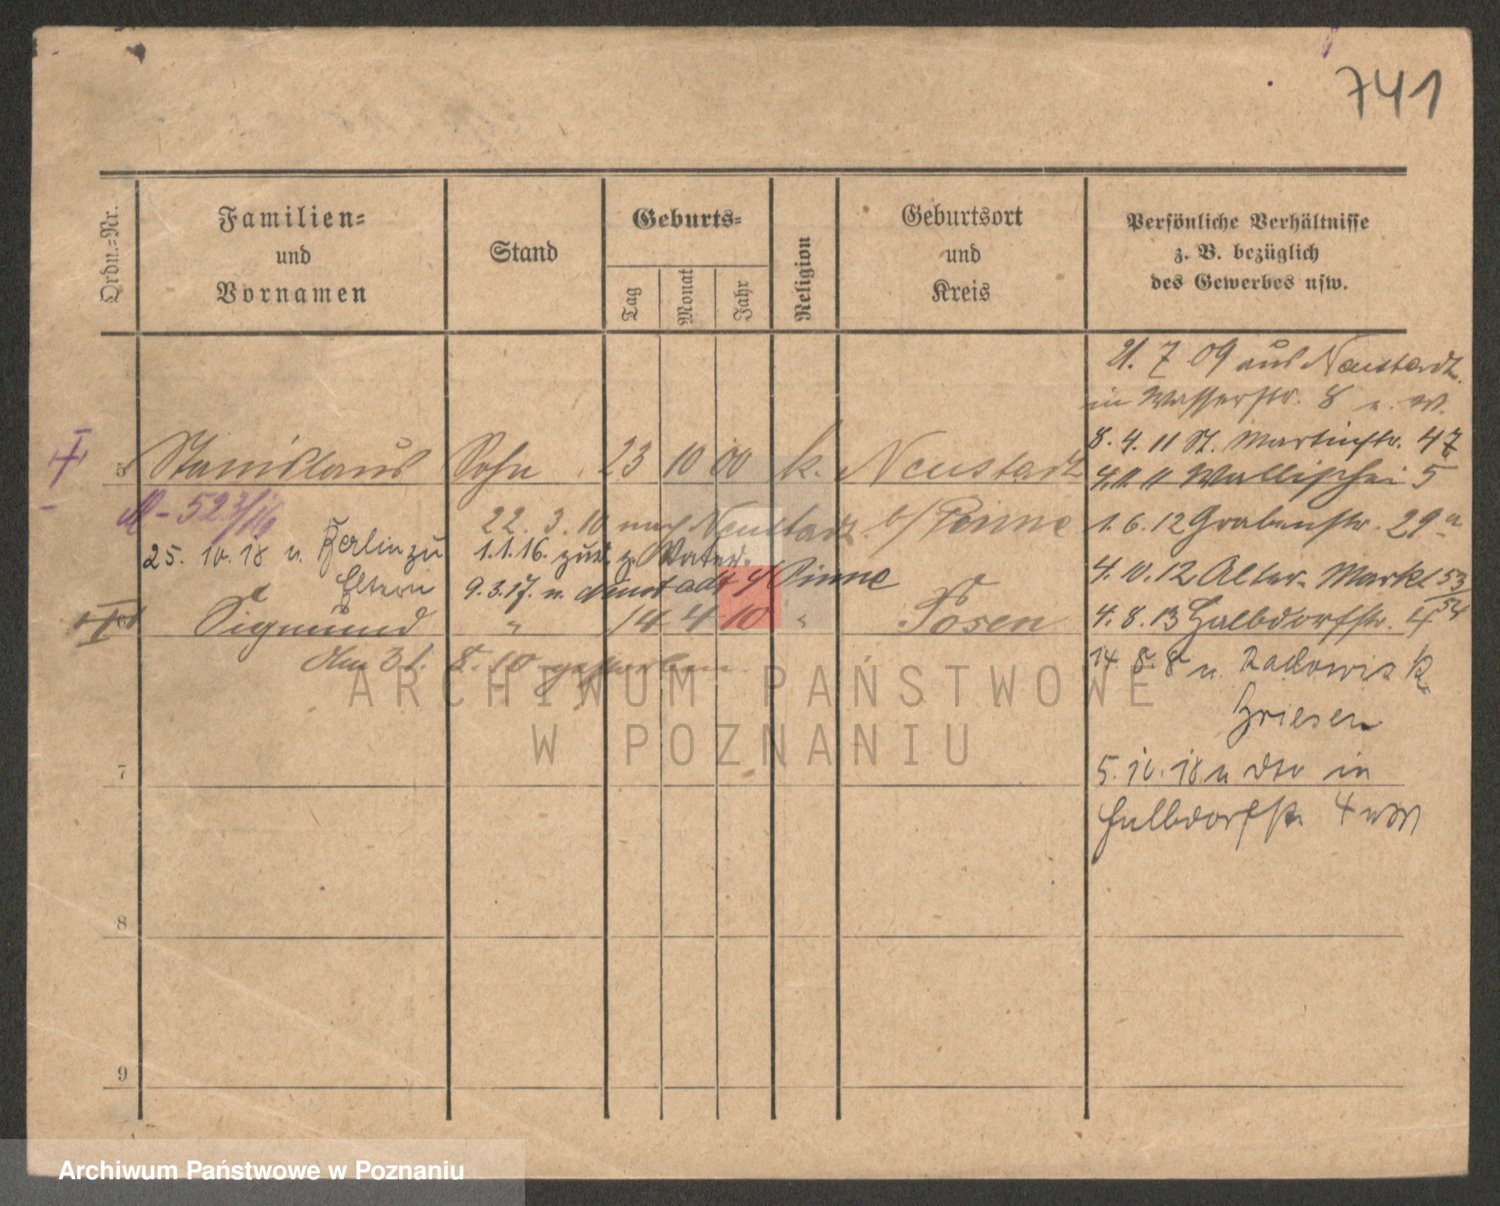 741
Ordn.=Nr.
Familien=
und
Vornamen
Stand
Geburts=
Tag
Monat
Jahr
Religion
Geburtsort
und
Kreis
Persönliche Verhältnisse
z. B. bezüglich
des Gewerbes usw.
21. 7 09 aus Neustadt
in Wasserstr. 8 u. W.
8. 4. 11 St. Martinstr. 47
5 Stanislaus Sohn 23 10 00 k. Neustadt
4. 11 11 Wallischei 5
M - 523/16
22. 3. 10 nach Neustadt b/ Pinne
1. 6. 12 Grabenstr. 29a
25. 10. 18 n. Berlin zu
Eltern
1.1.16. zurk. z. Vater.
9.3.17. n. Neustadt b/ Pinne
4. 10. 12 Alter Markt 53/54
6 Sigmund " 14 4 10 " Posen
4. 8. 13 Halbdorfstr. 4
Am 31. 8. 10 gestorben.
14. 8. 8 n. Radowis K
Briesen
7
5. 10. 18 u in
Halbdorfstr 4
8
9
ARCHIWUM PAŃSTWOWE
W POZNANIU
Archiwum Państwowe w Poznaniu